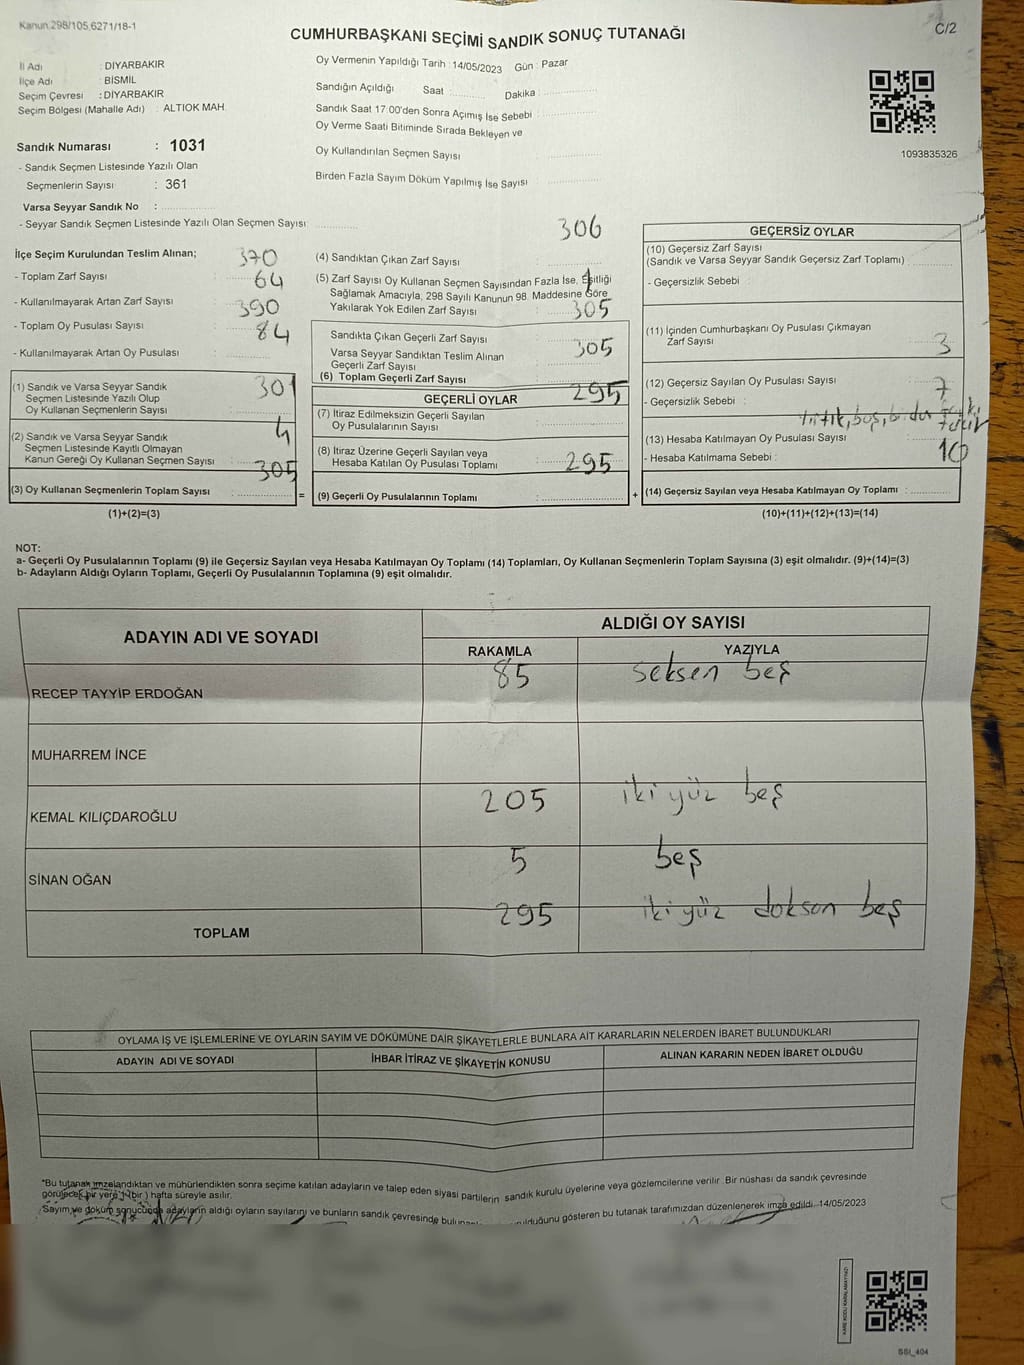 Kanun 298/105,6271/18-1
C/2
CUMHURBAŞKANI SEÇİMİ SANDIK SONUÇ TUTANAĞI
İl Adı : DİYARBAKIR
İlçe Adı : BİSMİL
Seçim Çevresi : DİYARBAKIR
Seçim Bölgesi (Mahalle Adı) : ALTIOK MAH.
Sandık Numarası : 1031
- Sandık Seçmen Listesinde Yazılı Olan
Seçmenlerin Sayısı : 361
Varsa Seyyar Sandık No :
- Seyyar Sandık Seçmen Listesinde Yazılı Olan Seçmen Sayısı
Oy Vermenin Yapıldığı Tarih : 14/05/2023 Gün : Pazar
Sandığın Açıldığı Saat : Dakika :
Sandık Saat 17:00'den Sonra Açımış İse Sebebi :
Oy Verme Saati Bitiminde Sırada Bekleyen ve
Oy Kullandırılan Seçmen Sayısı
Birden Fazla Sayım Döküm Yapılmış İse Sayısı
1093835326
İlçe Seçim Kurulundan Teslim Alınan; 370
- Toplam Zarf Sayısı : 64
- Kullanılmayarak Artan Zarf Sayısı : 390
- Toplam Oy Pusulası Sayısı : 84
- Kullanılmayarak Artan Oy Pusulası :
(1) Sandık ve Varsa Seyyar Sandık 301
Seçmen Listesinde Yazılı Olup
Oy Kullanan Seçmenlerin Sayısı :
(2) Sandık ve Varsa Seyyar Sandık 4
Seçmen Listesinde Kayıtlı Olmayan
Kanun Gereği Oy Kullanan Seçmen Sayısı : 305
(3) Oy Kullanan Seçmenlerin Toplam Sayısı :
=
(1)+(2)=(3)
306
(4) Sandıktan Çıkan Zarf Sayısı :
(5) Zarf Sayısı Oy Kullanan Seçmen Sayısından Fazla İse, Eşitliği 1
Sağlamak Amacıyla, 298 Sayılı Kanunun 98. Maddesine Göre
Yakılarak Yok Edilen Zarf Sayısı : 305
Sandıkta Çıkan Geçerli Zarf Sayısı :
Varsa Seyyar Sandıktan Teslim Alınan 305
Geçerli Zarf Sayısı :
(6) Toplam Geçerli Zarf Sayısı
GEÇERLİ OYLAR 295
(7) İtiraz Edilmeksizin Geçerli Sayılan
Oy Pusulalarının Sayısı :
(8) İtiraz Üzerine Geçerli Sayılan veya
Hesaba Katılan Oy Pusulası Toplamı : 295
(9) Geçerli Oy Pusulalarının Toplamı :
+
GEÇERSİZ OYLAR
(10) Geçersiz Zarf Sayısı
(Sandık ve Varsa Seyyar Sandık Geçersiz Zarf Toplamı) :
- Geçersizlik Sebebi :
(11) İçinden Cumhurbaşkanı Oy Pusulası Çıkmayan
Zarf Sayısı : 3
(12) Geçersiz Sayılan Oy Pusulası Sayısı : 7
- Geçersizlik Sebebi :
(13) Hesaba Katılmayan Oy Pusulası Sayısı :
- Hesaba Katılmama Sebebi : 10
(14) Geçersiz Sayılan veya Hesaba Katılmayan Oy Toplamı :
(10)+(11)+(12)+(13)=(14)
NOT:
a- Geçerli Oy Pusulalarının Toplamı (9) ile Geçersiz Sayılan veya Hesaba Katılmayan Oy Toplamı (14) Toplamları, Oy Kullanan Seçmenlerin Toplam Sayısına (3) eşit olmalıdır. (9)+(14)=(3)
b- Adayların Aldığı Oyların Toplamı, Geçerli Oy Pusulalarının Toplamına (9) eşit olmalıdır.
ADAYIN ADI VE SOYADI
ALDIĞI OY SAYISI
RAKAMLA YAZIYLA
RECEP TAYYİP ERDOĞAN 85 seksen beş
MUHARREM İNCE
KEMAL KILIÇDAROĞLU 205 iki yüz beş
SİNAN OĞAN 5 beş
TOPLAM 295 iki yüz doksan beş
OYLAMA İŞ VE İŞLEMLERİNE VE OYLARIN SAYIM VE DÖKÜMÜNE DAİR ŞİKAYETLERLE BUNLARA AİT KARARLARIN NELERDEN İBARET BULUNDUKLARI
ADAYIN ADI VE SOYADI İHBAR İTİRAZ VE ŞİKAYETİN KONUSU ALINAN KARARIN NEDEN İBARET OLDUĞU
*Bu tutanak imzalandıktan ve mühürlendikten sonra seçime katılan adayların ve talep eden siyasi partilerin sandık kurulu üyelerine veya gözlemcilerine verilir. Bir nüshası da sandık çevresinde
görülecek bir yere 1 (bir) hafta süreyle asılır.
Sayım ve döküm sonucunda adayların aldığı oyların sayılarını ve bunların sandık çevresinde gösteren bu tutanak tarafımızdan düzenlenerek imza edildi. 14/05/2023
SSI_404